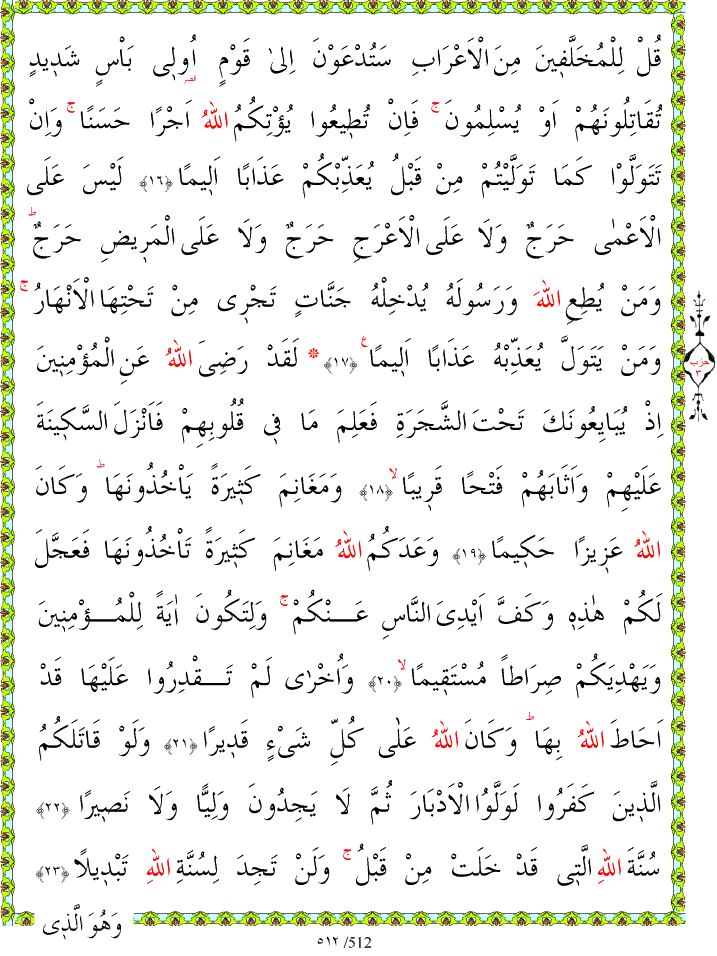 قُلْ لِلْمُخَلَّفٖينَ مِنَ الْاَعْرَابِ سَتُدْعَوْنَ اِلٰى قَوْمٍ اُولٖى بَاْسٍ شَدٖيدٍ
قصر
تُقَاتِلُونَهُمْ اَوْ يُسْلِمُونَۚ فَاِنْ تُطٖيعُوا يُؤْتِكُمُ اللّٰهُ اَجْرًا حَسَنًاۚ وَاِنْ
تَتَوَلَّوْا كَمَا تَوَلَّيْتُمْ مِنْ قَبْلُ يُعَذِّبْكُمْ عَذَابًا اَلٖيمًا ﴿١٦﴾ لَيْسَ عَلَى
الْاَعْمٰى حَرَجٌ وَلَا عَلَى الْاَعْرَجِ حَرَجٌ وَلَا عَلَى الْمَرٖيضِ حَرَجٌؕ
وَمَنْ يُطِعِ اللّٰهَ وَرَسُولَهُ يُدْخِلْهُ جَنَّاتٍ تَجْرٖى مِنْ تَحْتِهَا الْاَنْهَارُۚ
وَمَنْ يَتَوَلَّ يُعَذِّبْهُ عَذَابًا اَلٖيمًاࣖ ﴿١٧﴾ * لَقَدْ رَضِىَ اللّٰهُ عَنِ الْمُؤْمِنٖينَ
حزب
٣
اِذْ يُبَايِعُونَكَ تَحْتَ الشَّجَرَةِ فَعَلِمَ مَا فٖى قُلُوبِهِمْ فَاَنْزَلَ السَّكٖينَةَ
عَلَيْهِمْ وَاَثَابَهُمْ فَتْحًا قَرٖيبًاۙ ﴿١٨﴾ وَمَغَانِمَ كَثٖيرَةً يَاْخُذُونَهَاؕ وَكَانَ
اللّٰهُ عَزٖيزًا حَكٖيمًا ﴿١٩﴾ وَعَدَكُمُ اللّٰهُ مَغَانِمَ كَثٖيرَةً تَاْخُذُونَهَا فَعَجَّلَ
لَكُمْ هٰذِهٖ وَكَفَّ اَيْدِىَ النَّاسِ عَنْكُمْۚ وَلِتَكُونَ اٰيَةً لِلْمُؤْمِنٖينَ
وَيَهْدِيَكُمْ صِرَاطًا مُسْتَقٖيمًاۙ ﴿٢٠﴾ وَاُخْرٰى لَمْ تَقْدِرُوا عَلَيْهَا قَدْ
اَحَاطَ اللّٰهُ بِهَاؕ وَكَانَ اللّٰهُ عَلٰى كُلِّ شَىْءٍ قَدٖيرًا ﴿٢١﴾ وَلَوْ قَاتَلَكُمُ
الَّذٖينَ كَفَرُوا لَوَلَّوُا الْاَدْبَارَ ثُمَّ لَا يَجِدُونَ وَلِيًّا وَلَا نَصٖيرًا ﴿٢٢﴾
سُنَّةَ اللّٰهِ الَّتٖى قَدْ خَلَتْ مِنْ قَبْلُۚ وَلَنْ تَجِدَ لِسُنَّةِ اللّٰهِ تَبْدٖيلًا ﴿٢٣﴾
وَهُوَ الَّذٖى
٥١٢ /512